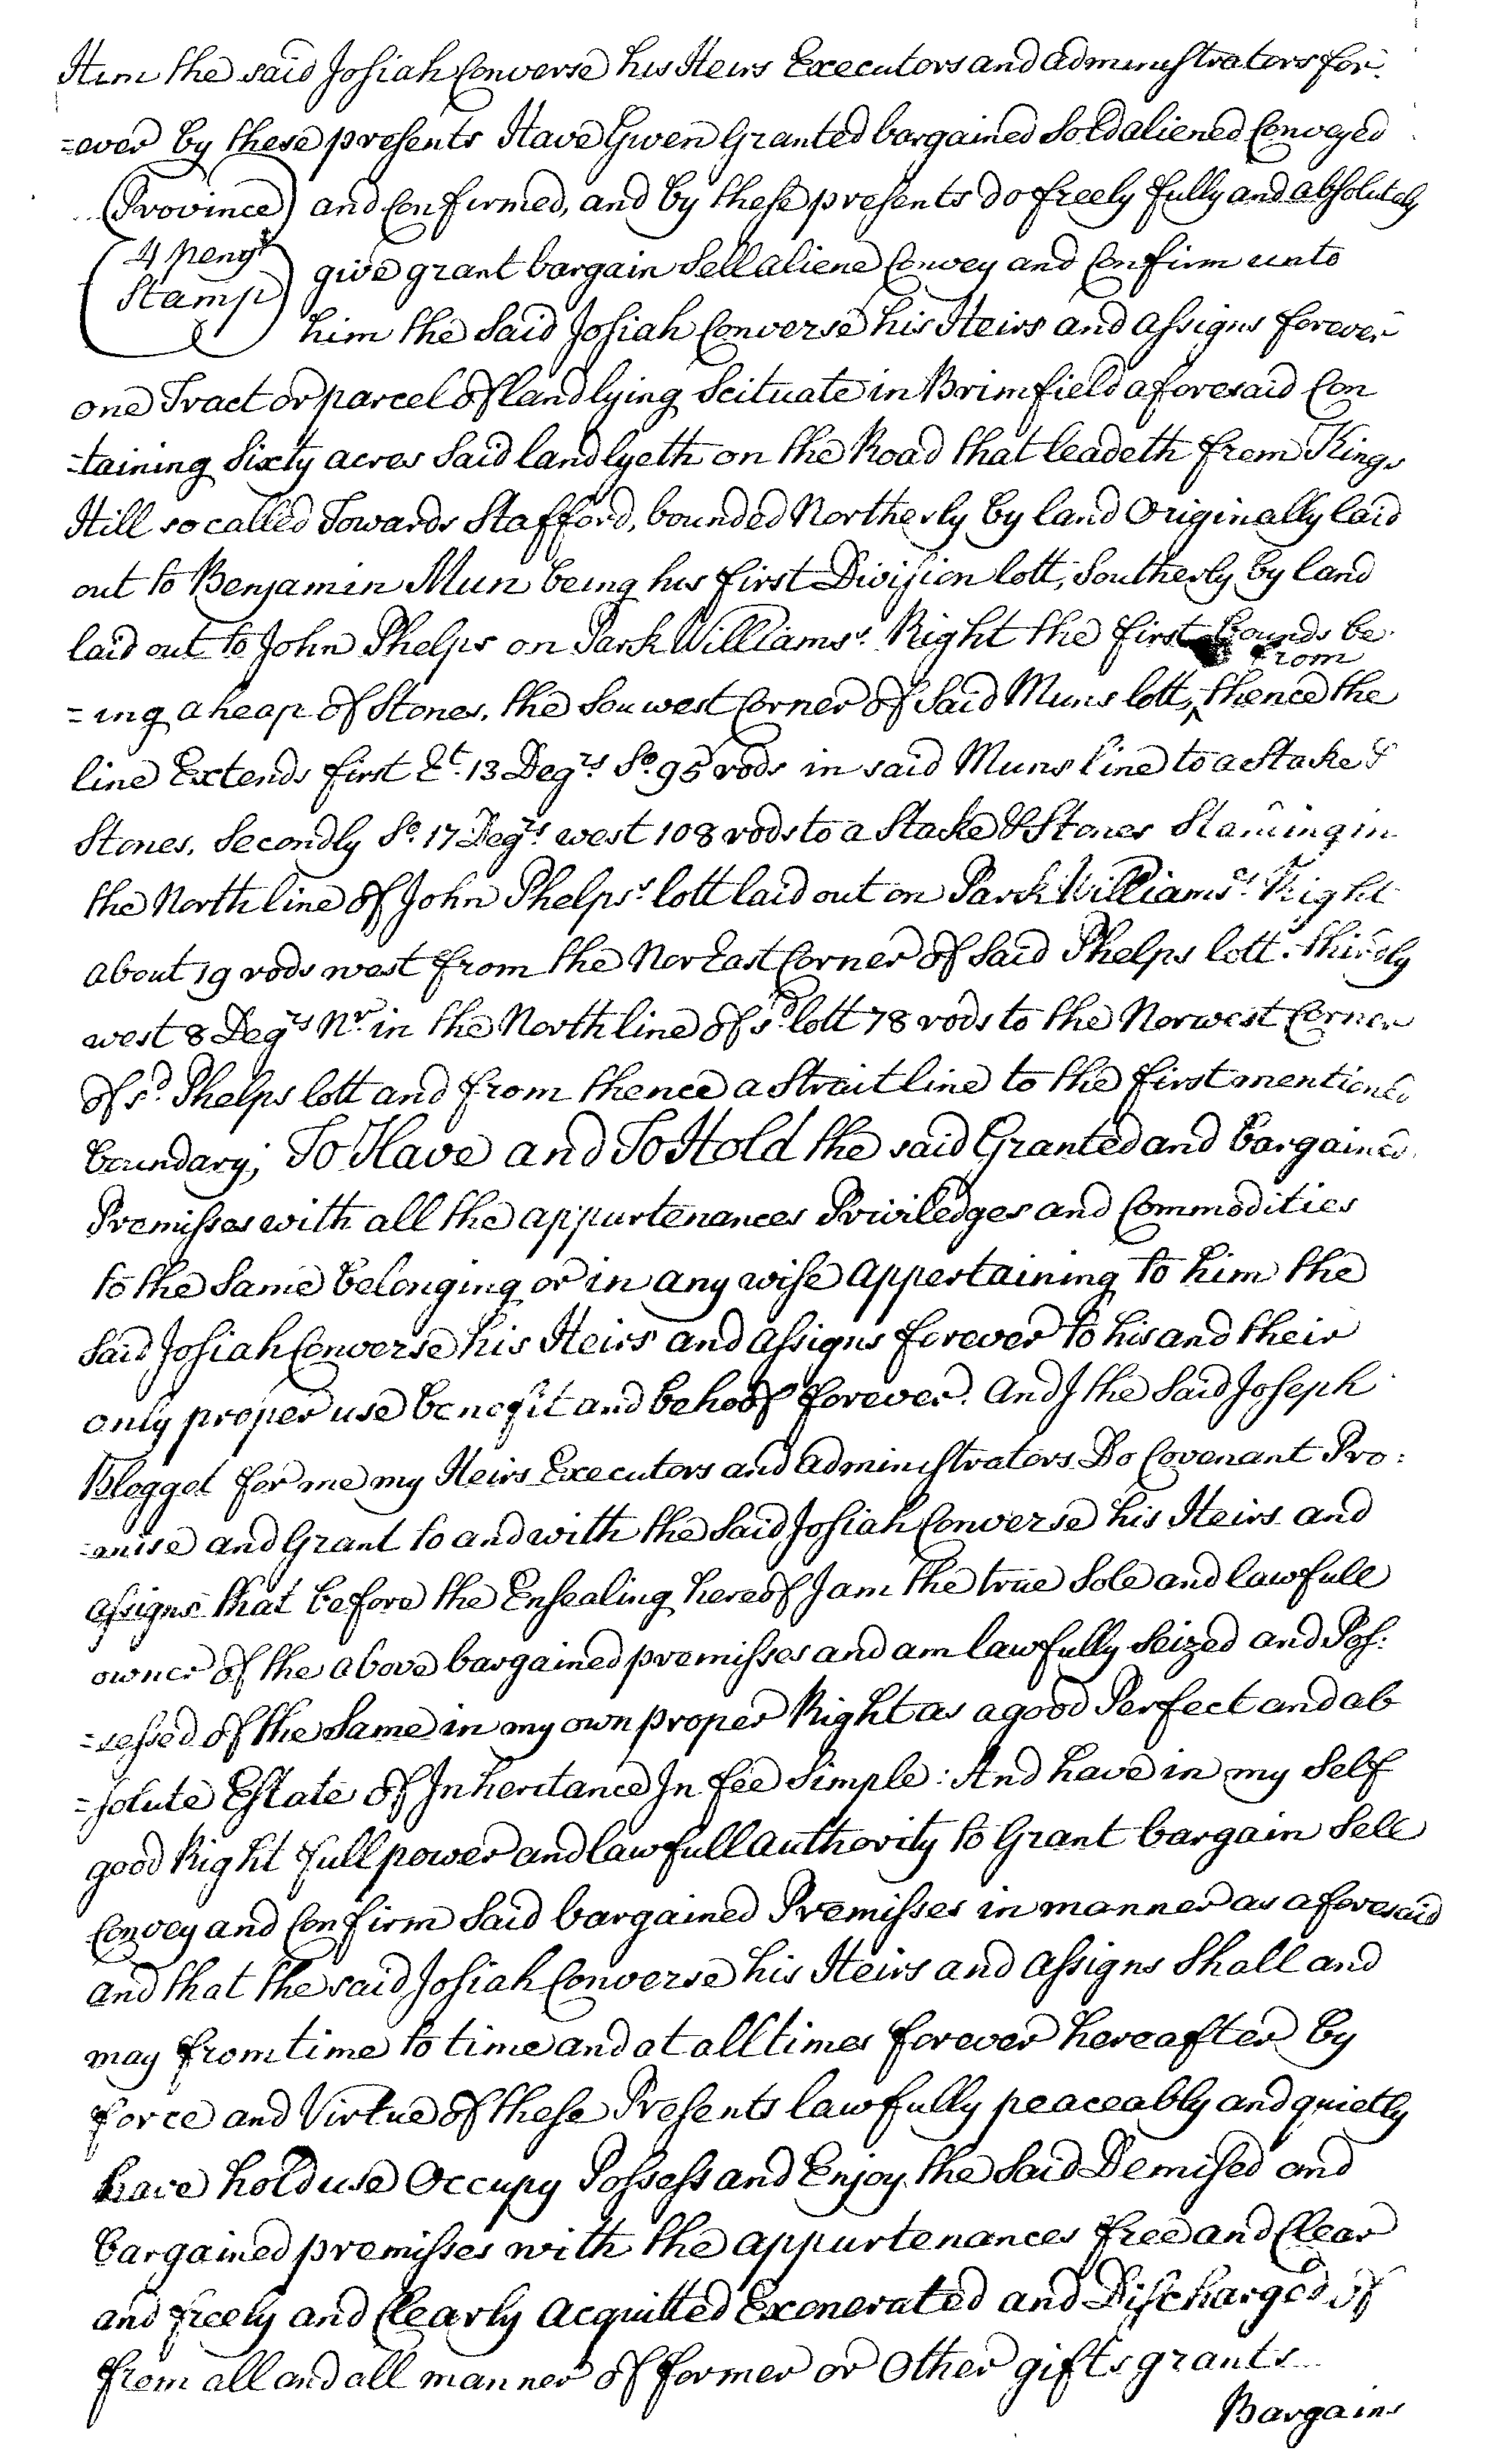 Him the said Josiah Converse his Heirs Executors and Administrators for
=ever by these presents Have Given Granted bargained Sold aliened Conveyed
(Province) and Confirmed, and by these presents do freely fully and absolutely
4 peny
Stamp
give grant bargain Sell aliene Convey and Confirm unto
him the Said Josiah Converse his Heirs and assigns forever
one Tract or parcel of land lying Scituate in Brimfield aforesaid Con
=taining Sixty acres Said land lyeth on the Road that leadeth from Kings
Hill so called Towards Stafford, bounded Northerly by land Originally laid
out to Benjamin Mun being his first Division lott, Southerly by land
laid out to John Phelps on Park Williams's Right the first bounds be
=ing a heap of Stones, the Souwest Corner of Said Muns lott, from thence the
line Extends first Et. 13 Degrs So. 95 rods in said Muns line to a Stake &
Stones, Secondly So. 17 Degrs west 108 rods to a Stake & Stones Standing in
the North line of John Phelps's lott laid out on Park Williams's Right
about 19 rods west from the Nor East Corner of Said Phelps lott. thirdly
west 8 Degrs Nr. in the North line of sd. lott 78 rods to the Norwest Corner
of sd. Phelps lott and from thence a Strait line to the first mentioned
boundary; To Have and To Hold the said Granted and bargained
Premisses with all the appurtenances Priviledges and Commodities
to the Same belonging or in any wise appertaining to him the
Said Josiah Converse his Heirs and assigns forever to his and their
only proper use benefit and behoof forever. And I the Said Joseph
Blogget for me my Heirs Executors and administrators Do Covenant Pro:
=mise and Grant to and with the Said Josiah Converse his Heirs and
assigns that before the Ensealing hereof I am the true Sole and lawfull
owner of the above bargained premisses and am lawfully Seized and Pos:
=sessed of the Same in my own proper Right as a good Perfect and ab
=solute Estate of Inheritance In fee Simple: And have in my Self
good Right full power and lawfull authority to Grant bargain Sell
Convey and Confirm Said bargained Premisses in manner as aforesaid
and that the said Josiah Converse his Heirs and assigns Shall and
may from time to time and at all times forever hereafter by
force and Virtue of these Presents lawfully peaceably and quietly
have hold use Occupy Possess and Enjoy the Said Demised and
bargained premisses with the appurtenances free and Clear
and freely and Clearly acquitted Exonerated and Discharged of
from all and all manner of former or Other gifts grants
Bargains